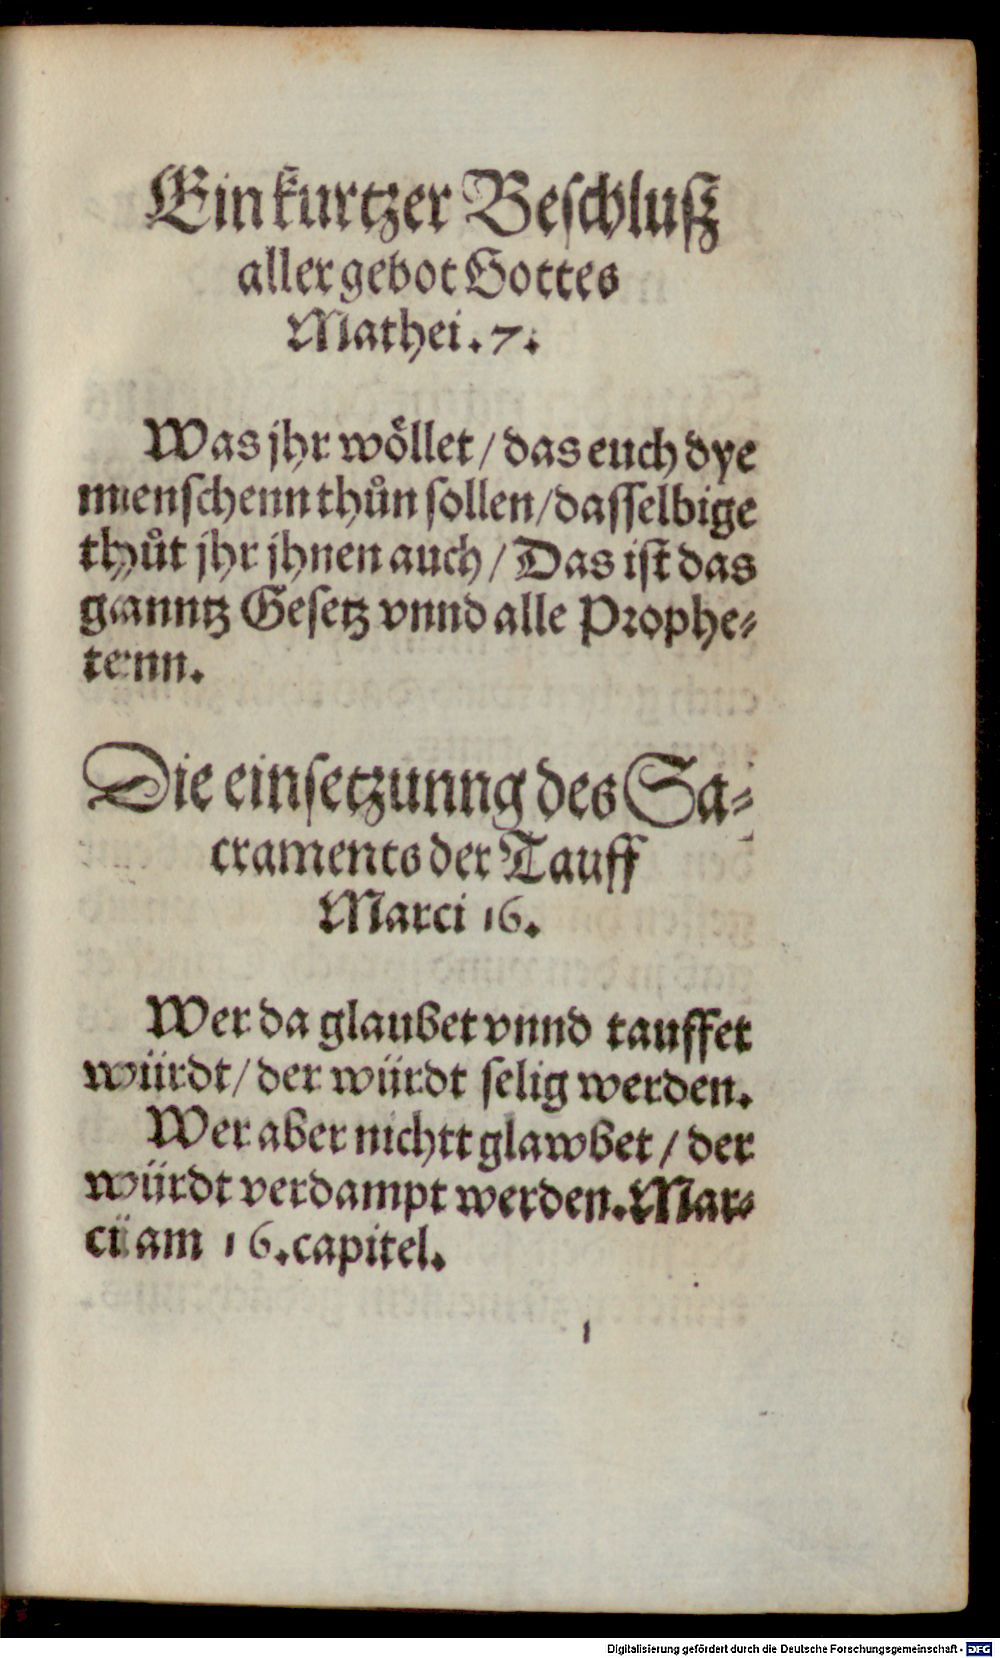 Ein kurtzer Beschluß
aller gebot Gottes
Mathei. 7.
Was jhr wöllet / das euch dye
menschenn thůn sollen / dasselbige
thůt jhr jhnen auch / Das ist das
ganntz Gesetz vnnd alle Prophe⸗
tenn.
Die einsetzunng des Sa⸗
craments der Tauff
Marci 16.
Wer da glaubet vnnd tauffet
würdt / der würdt selig werden.
Wer aber nichtt glawbet / der
würdt verdampt werden. Mar⸗
ci am 16. capitel.
Digitalisierung gefördert durch die Deutsche Forschungsgemeinschaft - DFG